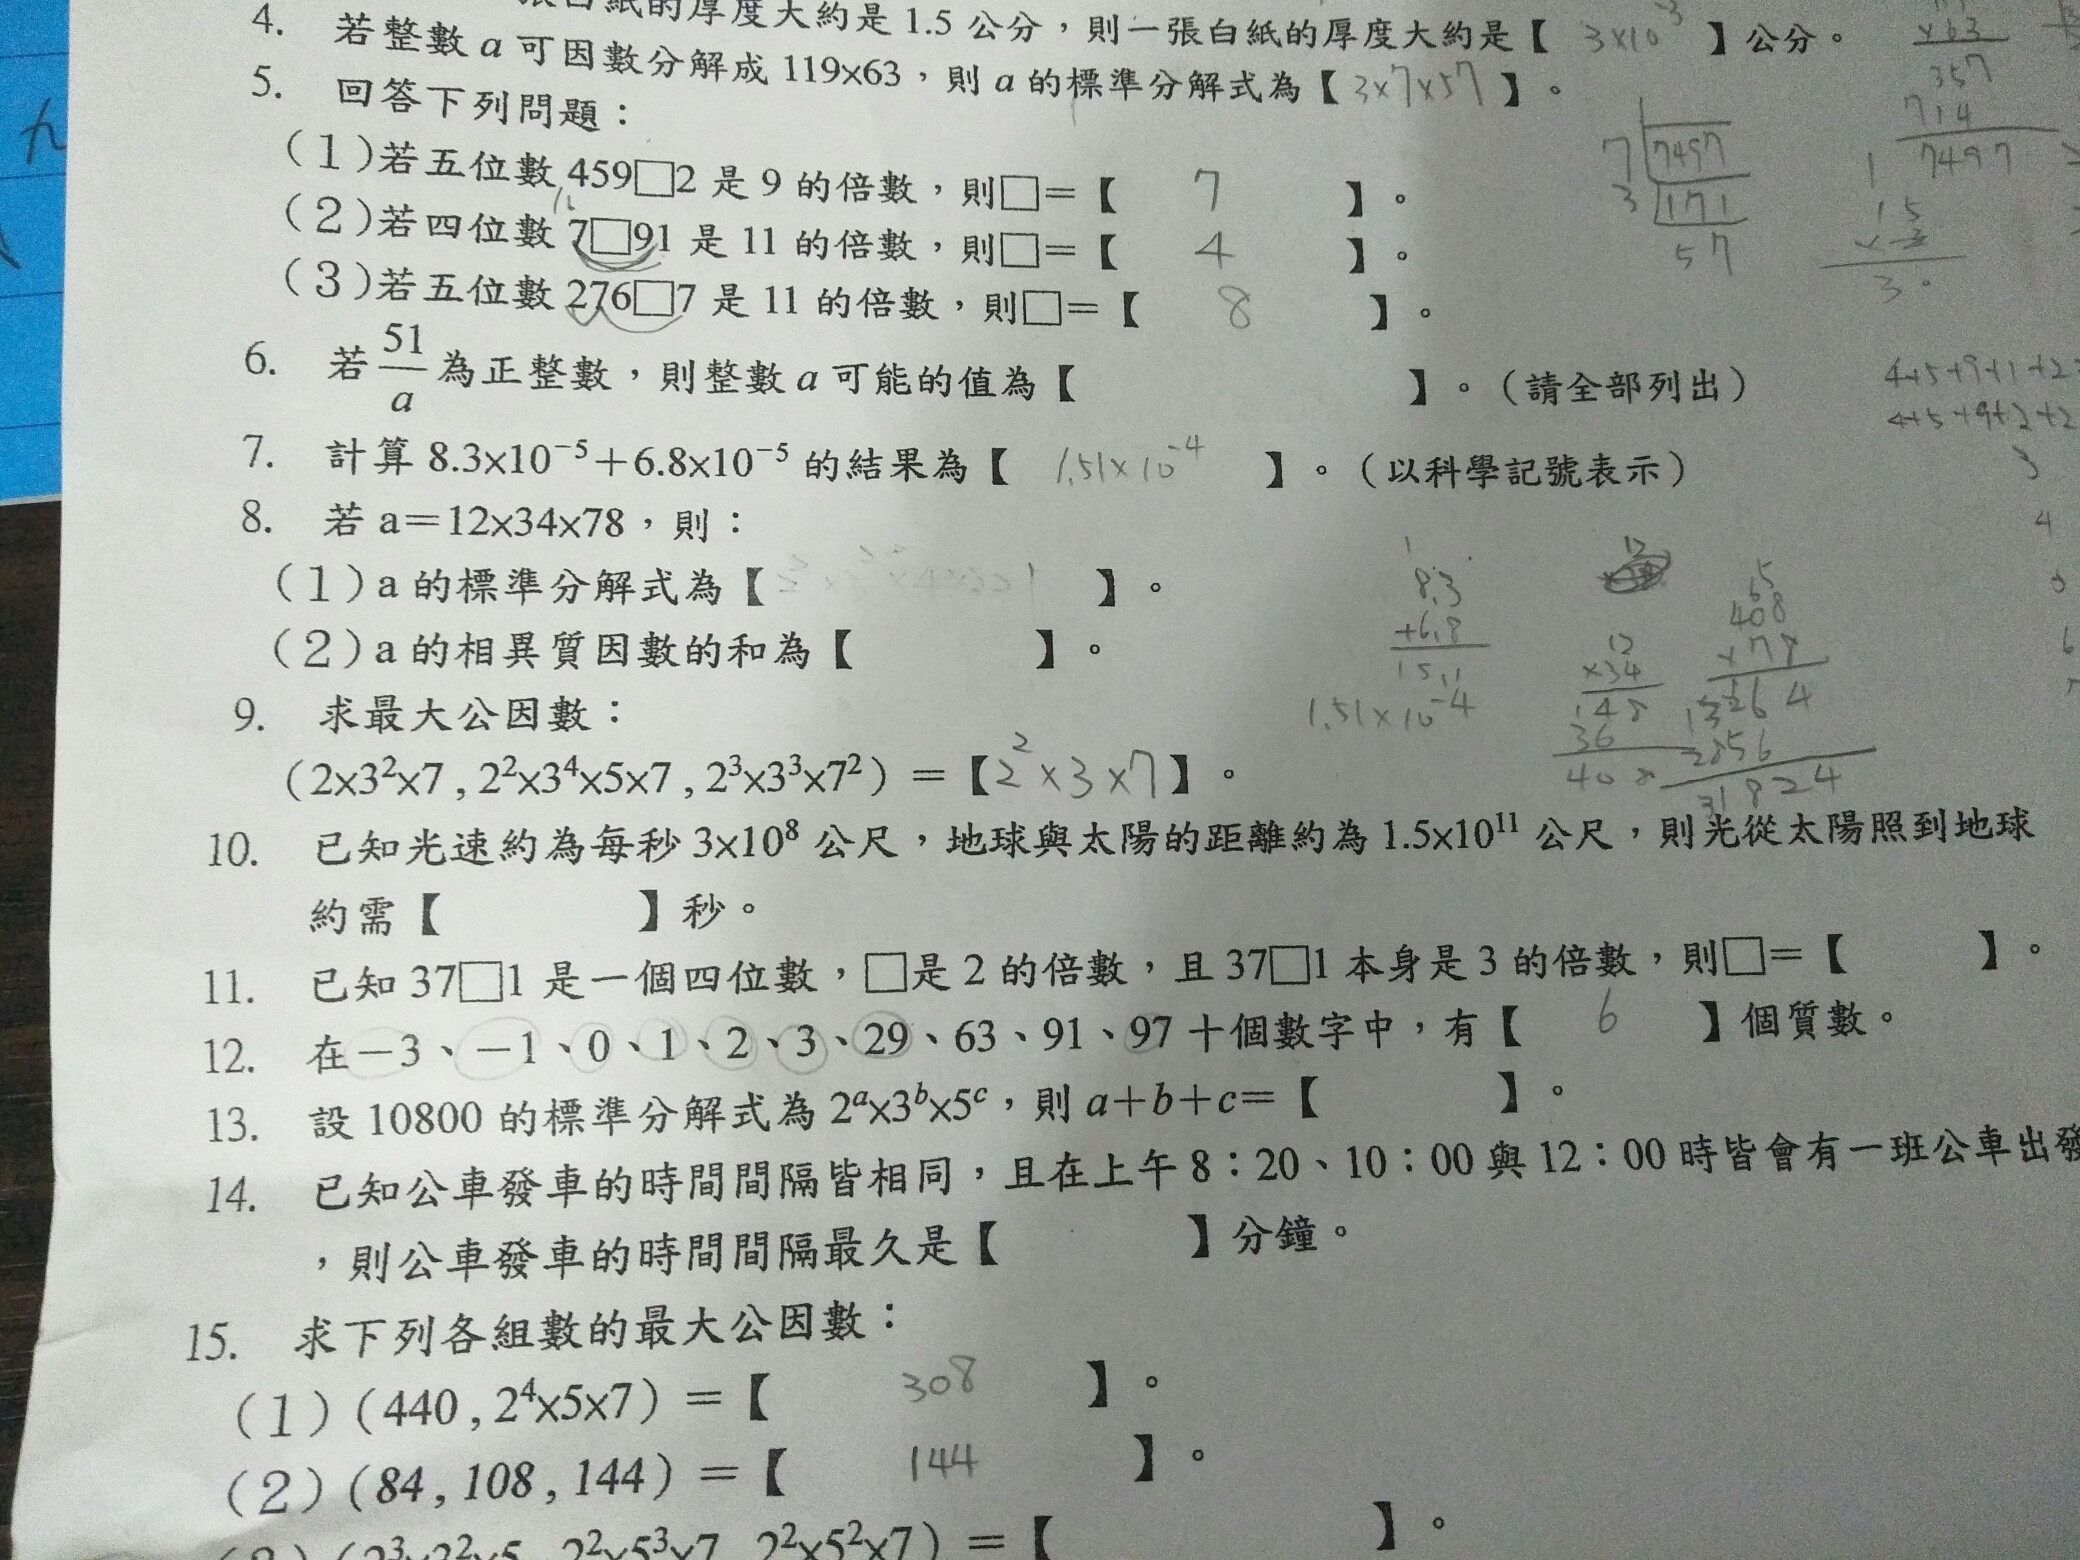 張白紙的厚度大約是 1.5 公分，則一張白紙的厚度大約是【 3×10⁻³ 】公分。
4. 若整數 a 可因數分解成 119×63，則 a 的標準分解式為【 3×7×57 】。
5. 回答下列問題：
（1）若五位數 459□2 是 9 的倍數，則□＝【 7 】。
（2）若四位數 7□91 是 11 的倍數，則□＝【 4 】。
（3）若五位數 276□7 是 11 的倍數，則□＝【 8 】。
6. 若 51/a 為正整數，則整數 a 可能的值為【 】。（請全部列出）
7. 計算 8.3×10⁻⁵＋6.8×10⁻⁵ 的結果為【 1.51×10⁻⁴ 】。（以科學記號表示）
8. 若 a＝12×34×78，則：
（1）a 的標準分解式為【 】。
（2）a 的相異質因數的和為【 】。
9. 求最大公因數：
（2×3²×7 , 2²×3⁴×5×7 , 2³×3³×7²）＝【2²×3×7】。
10. 已知光速約為每秒 3×10⁸ 公尺，地球與太陽的距離約為 1.5×10¹¹ 公尺，則光從太陽照到地球
約需【 】秒。
11. 已知 37□1 是一個四位數，□是 2 的倍數，且 37□1 本身是 3 的倍數，則□＝【 】。
12. 在－3、－1、0、1、2、3、29、63、91、97 十個數字中，有【 6 】個質數。
13. 設 10800 的標準分解式為 2ᵃ×3ᵇ×5ᶜ，則 a＋b＋c＝【 】。
14. 已知公車發車的時間間隔皆相同，且在上午 8：20、10：00 與 12：00 時皆會有一班公車出發
，則公車發車的時間間隔最久是【 】分鐘。
15. 求下列各組數的最大公因數：
（1）（440 , 2⁴×5×7）＝【 308 】。
（2）（84 , 108 , 144）＝【 144 】。
（3）（2³×2²×5 , 2²×5³×7 , 2²×5²×7）＝【 】。
×63
357
714
7497
7 7497
3 171
57
15
×2
30
4+5+9+1+2
4+5+9+2+2
3
4
8.3
+6.8
15.1
1.51×10⁻⁴
12
×34
48
36
408
408
×78
3264
2856
31824